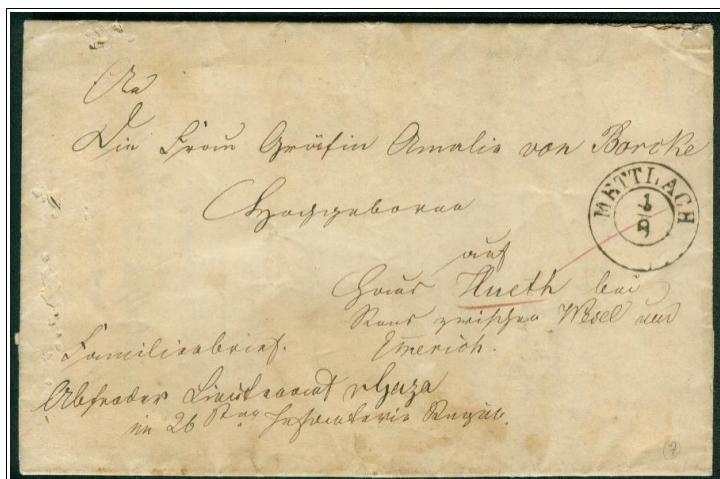 An
Die Frau Gräfin Amalie von Borcke
Hochgeboren
METTLACH
1/9
auf
Haus Hueth bei
Rees zwischen Wesel und
Emerich.
Familienbrief.
Absender Lieutenant v Gaza
im 26 Sten Infanterie Regim.
(7)